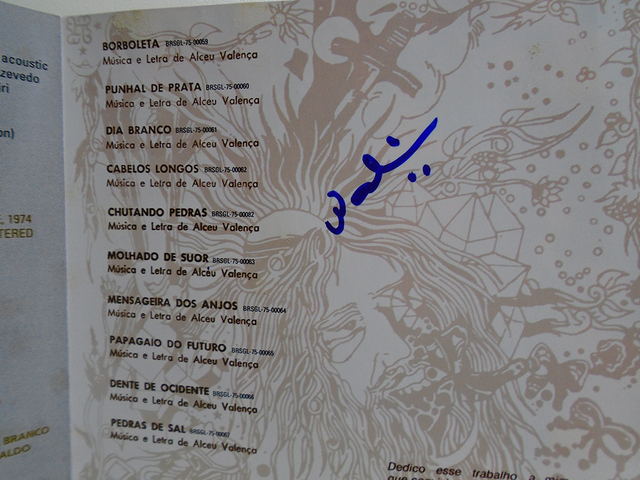 acoustic
zevedo
E, 1974
TERED
BRANCO
ALDO
BORBOLETA BRSGL-75-00059
Música e Letra de Alceu Valença
PUNHAL DE PRATA BRSGL-75-00060
Música e Letra de Alceu Valença
DIA BRANCO BRSGL-75-00061
Música e Letra de Alceu Valença
CABELOS LONGOS BRSGL-75-00062
Música e Letra de Alceu Valença
CHUTANDO PEDRAS BRSGL-75-00082
Música e Letra de Alceu Valença
MOLHADO DE SUOR BRSGL-75-00063
Música e Letra de Alceu Valença
MENSAGEIRA DOS ANJOS BRSGL-75-00064
Música e Letra de Alceu Valença
PAPAGAIO DO FUTURO BRSGL-75-00065
Música e Letra de Alceu Valença
DENTE DE OCIDENTE BRSGL-75-00066
Música e Letra de Alceu Valença
PEDRAS DE SAL BRSGL-75-00067
Música e Letra de Alceu Valença
Dedico esse trabalho a